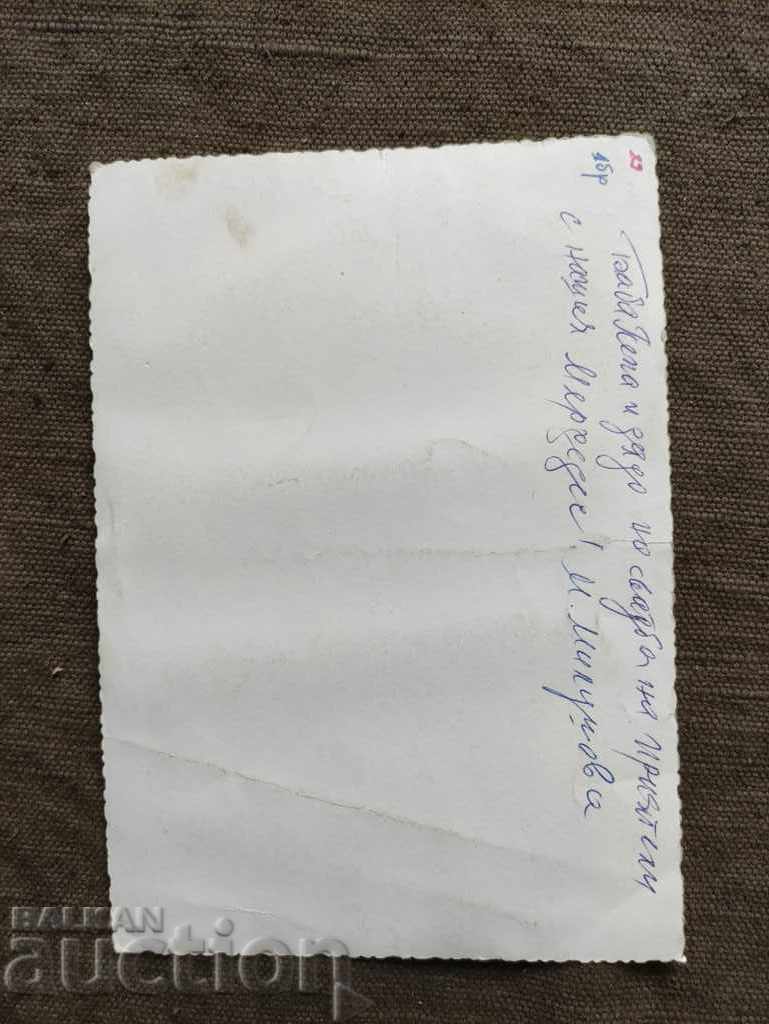 27
1бр
Баба Лена и дядо по свадба на приятели
с нашия Мерцедес! М. Милумова
BALKAN
auction